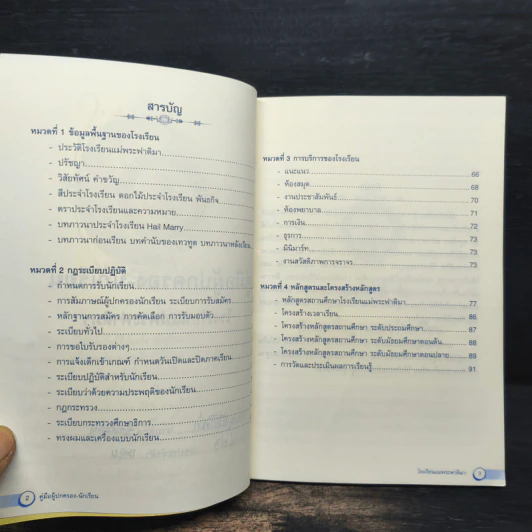 สารบัญ
หมวดที่ 1 ข้อมูลพื้นฐานของโรงเรียน
- ประวัติโรงเรียนแม่พระฟาติมา
- ปรัชญา
- วิสัยทัศน์ คำขวัญ
- สีประจำโรงเรียน ดอกไม้ประจำโรงเรียน พันธกิจ
- ตราประจำโรงเรียนและความหมาย
- บทภาวนาประจำโรงเรียน Hail Marry
- บทภาวนาก่อนเรียน บทคำนับของเทวทูต บทภาวนาหลังเรียน
หมวดที่ 2 กฎระเบียบปฏิบัติ
- กำหนดการรับนักเรียน
- การสัมภาษณ์ผู้ปกครองนักเรียน ระเบียบการรับสมัคร
- หลักฐานการสมัคร การคัดเลือก การรับมอบตัว
- ระเบียบทั่วไป
- การขอใบรับรองต่างๆ
- การแจ้งเด็กเข้าเกณฑ์ กำหนดวันเปิดและปิดภาคเรียน
- ระเบียบปฏิบัติสำหรับนักเรียน
- ระเบียบว่าด้วยความประพฤติของนักเรียน
- กฎกระทรวง
- ระเบียบกระทรวงศึกษาธิการ
- ทรงผมและเครื่องแบบนักเรียน
2 คู่มือผู้ปกครอง-นักเรียน
หมวดที่ 3 การบริการของโรงเรียน
- แนะแนว 66
- ห้องสมุด 68
- งานประชาสัมพันธ์ 70
- ห้องพยาบาล 71
- การเงิน 72
- ธุรการ 73
- มินิมาร์ท 73
- งานสวัสดิภาพการจราจร 73
หมวดที่ 4 หลักสูตรและโครงสร้างหลักสูตร
- หลักสูตรสถานศึกษาโรงเรียนแม่พระฟาติมา 77
- โครงสร้างเวลาเรียน 86
- โครงสร้างหลักสูตรสถานศึกษา ระดับประถมศึกษา 87
- โครงสร้างหลักสูตรสถานศึกษา ระดับมัธยมศึกษาตอนต้น 88
- โครงสร้างหลักสูตรสถานศึกษา ระดับมัธยมศึกษาตอนปลาย 89
- การวัดและประเมินผลการเรียนรู้ 91
โรงเรียนแม่พระฟาติมา 3